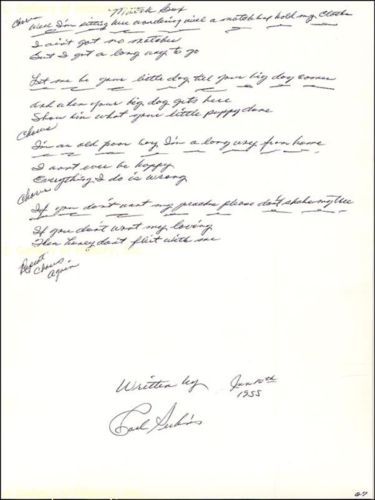 Match Box
Chorus
Well I'm sitting here wondering will a match box hold my Clothes
I ain't got no matches
But I got a long way to go
Let me be your little dog till your big dog comes
and when your big dog gets here
Show him what your little puppy done
Chorus
I'm an old poor boy, I'm a long way from home
I won't ever be happy
Everything I do is wrong
Chorus
If you don't want my peaches please don't shake my tree
If you don't want my loving
Then honey don't flirt with me
Repeat
Chorus
Again
Written by Jan 10th
1955
Carl Perkins